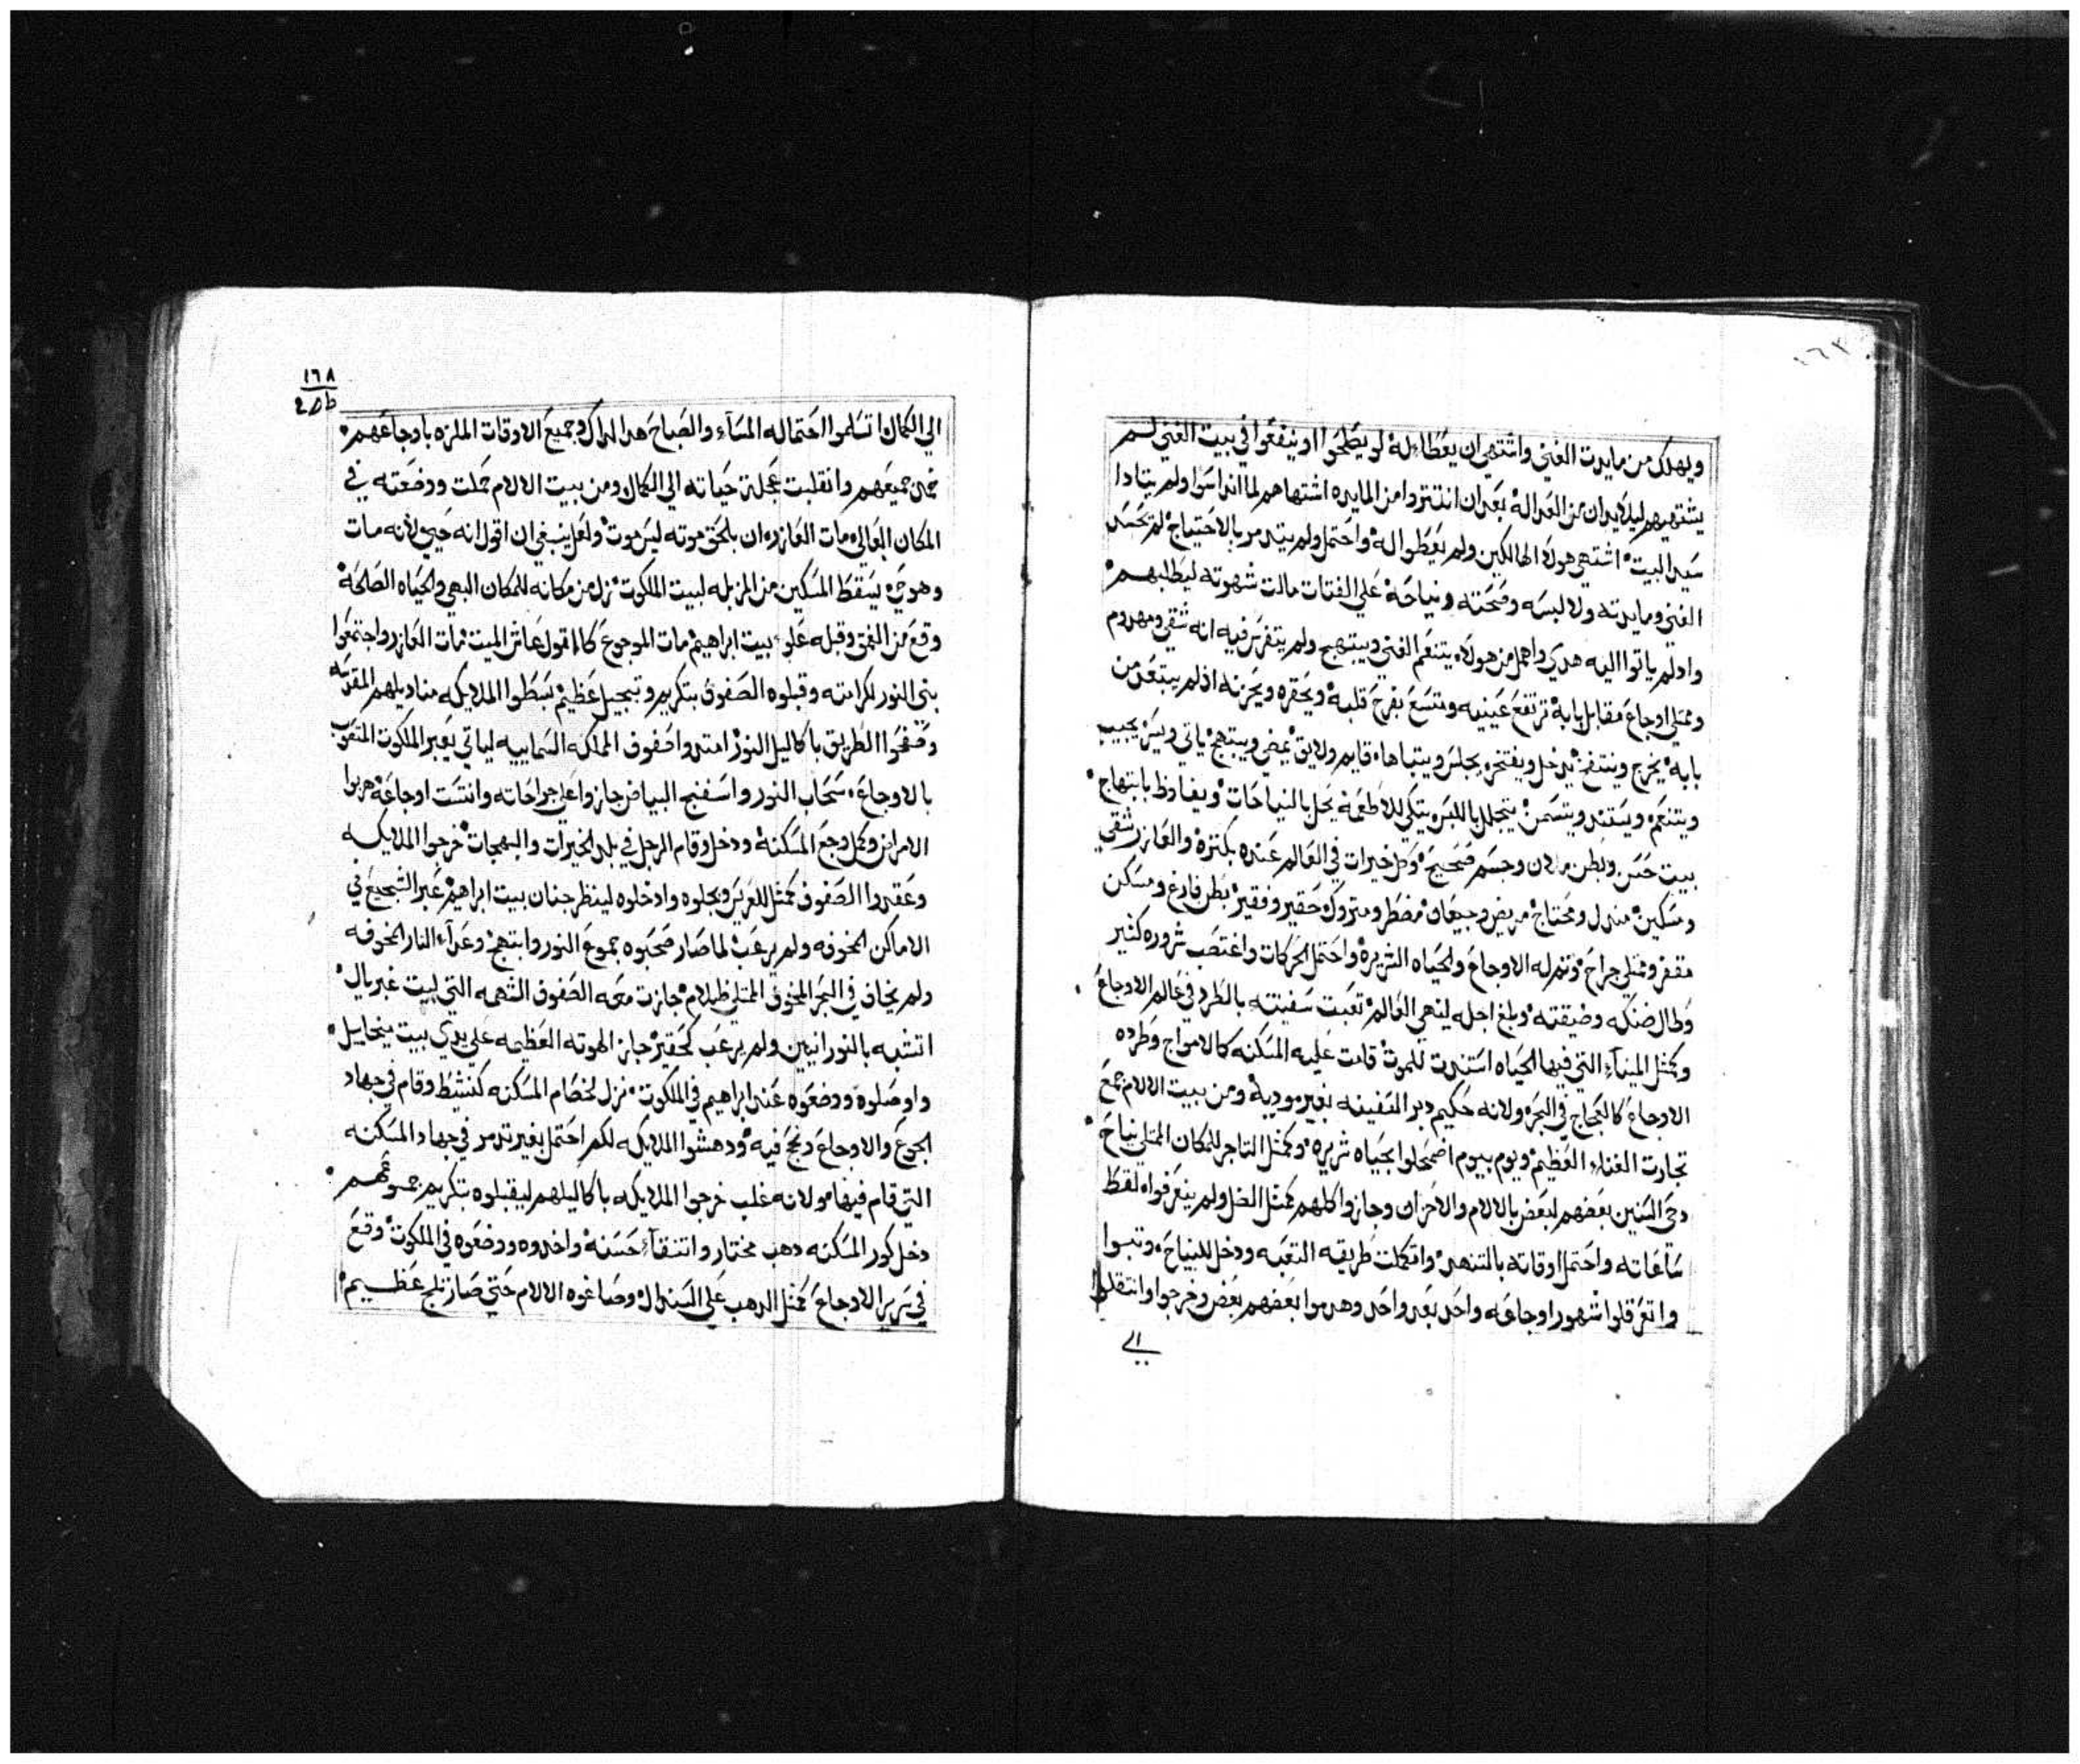 ويهلك من مايدت الغني واشتهي ان يعطاله لو يطلحوا او ينفعوا في بيت الغني لم
يشتهيهم ليلا يدان من العداله بعد ان انتتروا من المايده اشتهاهم لما انداسوا ولم يتادا
سيد البيت اشتهي هولا الهالكين ولم يعطوا له واحتمل ولم يتدمر بالاحتياج لم تحسد
الغني ومايدته ولا لبسه وصحته ونياحه علي الفتات مالت شهوته ليطالبهم
واد لم ياتوا اليه هدي واهمل من هولاء يتنعم الغني ويبتهج ولم يتفرس فيه انه شقي ومهدوم
وممتلي اوجاع مقابل بابه ترتفع عينيه ويتسع بفرح قلبه ويحقره ويحزنه اذ لم يبتعد من
بابه يخرج وينتفخ يدخل ويفتخر يجلس ويتباها قايم ولايق يمضي ويبتهج ياتي ويسر يجيب
ويتنعم ويستند ويتسمن يتجلل باللبس يتكي للاطعمه يحل بالنياحات ويفاوظ بابتهاج
بيت حسن وبطن ملان وجسم صحيح وكل خيرات في العالم عنده بكتره والعازر شقي
ومسكين مندل ومحتاج مريض وجيعان مضطر ومتروك حقير وفقير بطن فارغ ومسكن
مقفر وممتلي جراح وتمر له الاوجاع والحياه الشريره واحتمل الحركات واغتصب شروره كثير
وطال ضنكه وضيقته وبلغ اجله لينهي العالم تعبت سفينته بالطرد في عالم الاوجاع
وكمثل الميناء التي فيها الحياه استندت للموت قامت عليه المسكنه كالامواج وطرده
الاوجاع كالعجاج في البحر ولانه حكيم دبر السفينه بغير موديه ومن بيت الالام جمع
تجارت الغناء العظيم ويوم بيوم اضمحلوا بحياه شريره وكمثل التاجر للمكان الممتلي نياح
دحي السنين بعضهم لبعض بالالام والاحزان وجازوا كلهم كمثل الضل ولم يتعرفوا لقط
ساعاته واحتمل اوقاته بالتنهد واتكملت طريقه التعبه ودخل للنياح وتبوا
واتعرقلوا شهور اوجاعه واحد بعد واحد وهدموا بعضهم بعض وخرجوا وانتقلوا
الي
١٦٨
الي الكمال اتسلموا احتماله المساء والصباح هدا لداك وجميع الاوقات الملزه باوجاعهم
جميعهم وانقلبت عجلة حياته الي الكمال ومن بيت الالام حملت ووضعته في
المكان العالي مات العازر ان بلحق موته ليس موت ولعل ينبغي ان اقول انه حي لانه مات
وهو حي يسقط المسكين من المزبله لبيت الملكوت نزل من مكانه للمكان البهي والحياه الصالحه
وقع من العمق وقبله علو بيت ابراهيم مات الموجوع كالقول عاش الميت مات العازر واجتمعوا
بني النور لكرامته وقبلوه الصفوف بتكريم وتبجيل عظيم بسطوا الملايكه مناديلهم المقدسه
وضفحوا الطريق باكاليل النور امتدوا صفوف المملكه السماييه لياتي يعبر الملكوت المتعوب
بالاوجاع سحاب النور واسفنج البياض جازوا علي جراحاته وانتست اوجاعه هربوا
الامراض وكمل وجع المسكنه ودخل وقام الرجل في بلد الخيرات والبهجات خرجوا الملايكه
وعقدوا الصفوف كمثل للعريس وبجلوه وادخلوه لينظر جنان بيت ابراهيم عبر الشجيع في
الاماكن المخوفه ولم يرعب لما صار صحبوه جموع النور وابتهج وعداء النار المخوفه
ولم يخاف في البحر المخوف الممتلي ظلام جازت معه الصفوف الشهمه التي لبيت غبريال
اتشبه بالنورانيين ولم يرعب كحقير جاز الهوته العظيمه علي يدي بيت ميخاييل
واوصلوه ووضعوه عند ابراهيم في الملكوت نزل لخصام المسكنه كنشيط وقام في جهاد
الجوع والاوجاع ونجح فيه ودهشوا الملايكه لكم احتمل بغير تدمر في جهاد المسكنه
التي قام فيها مولانه غلب خرجوا الملايكه باكاليلهم ليقبلوه بتكريم جموعهم
دخل كور المسكنه دهب مختار واتنقاء حسنه واخدوه ووضعوه في الملكوت وقع
في سرير الاوجاع كمثل الدهب علي السندال وصاغوه الالام حتي صار تاج عظيم